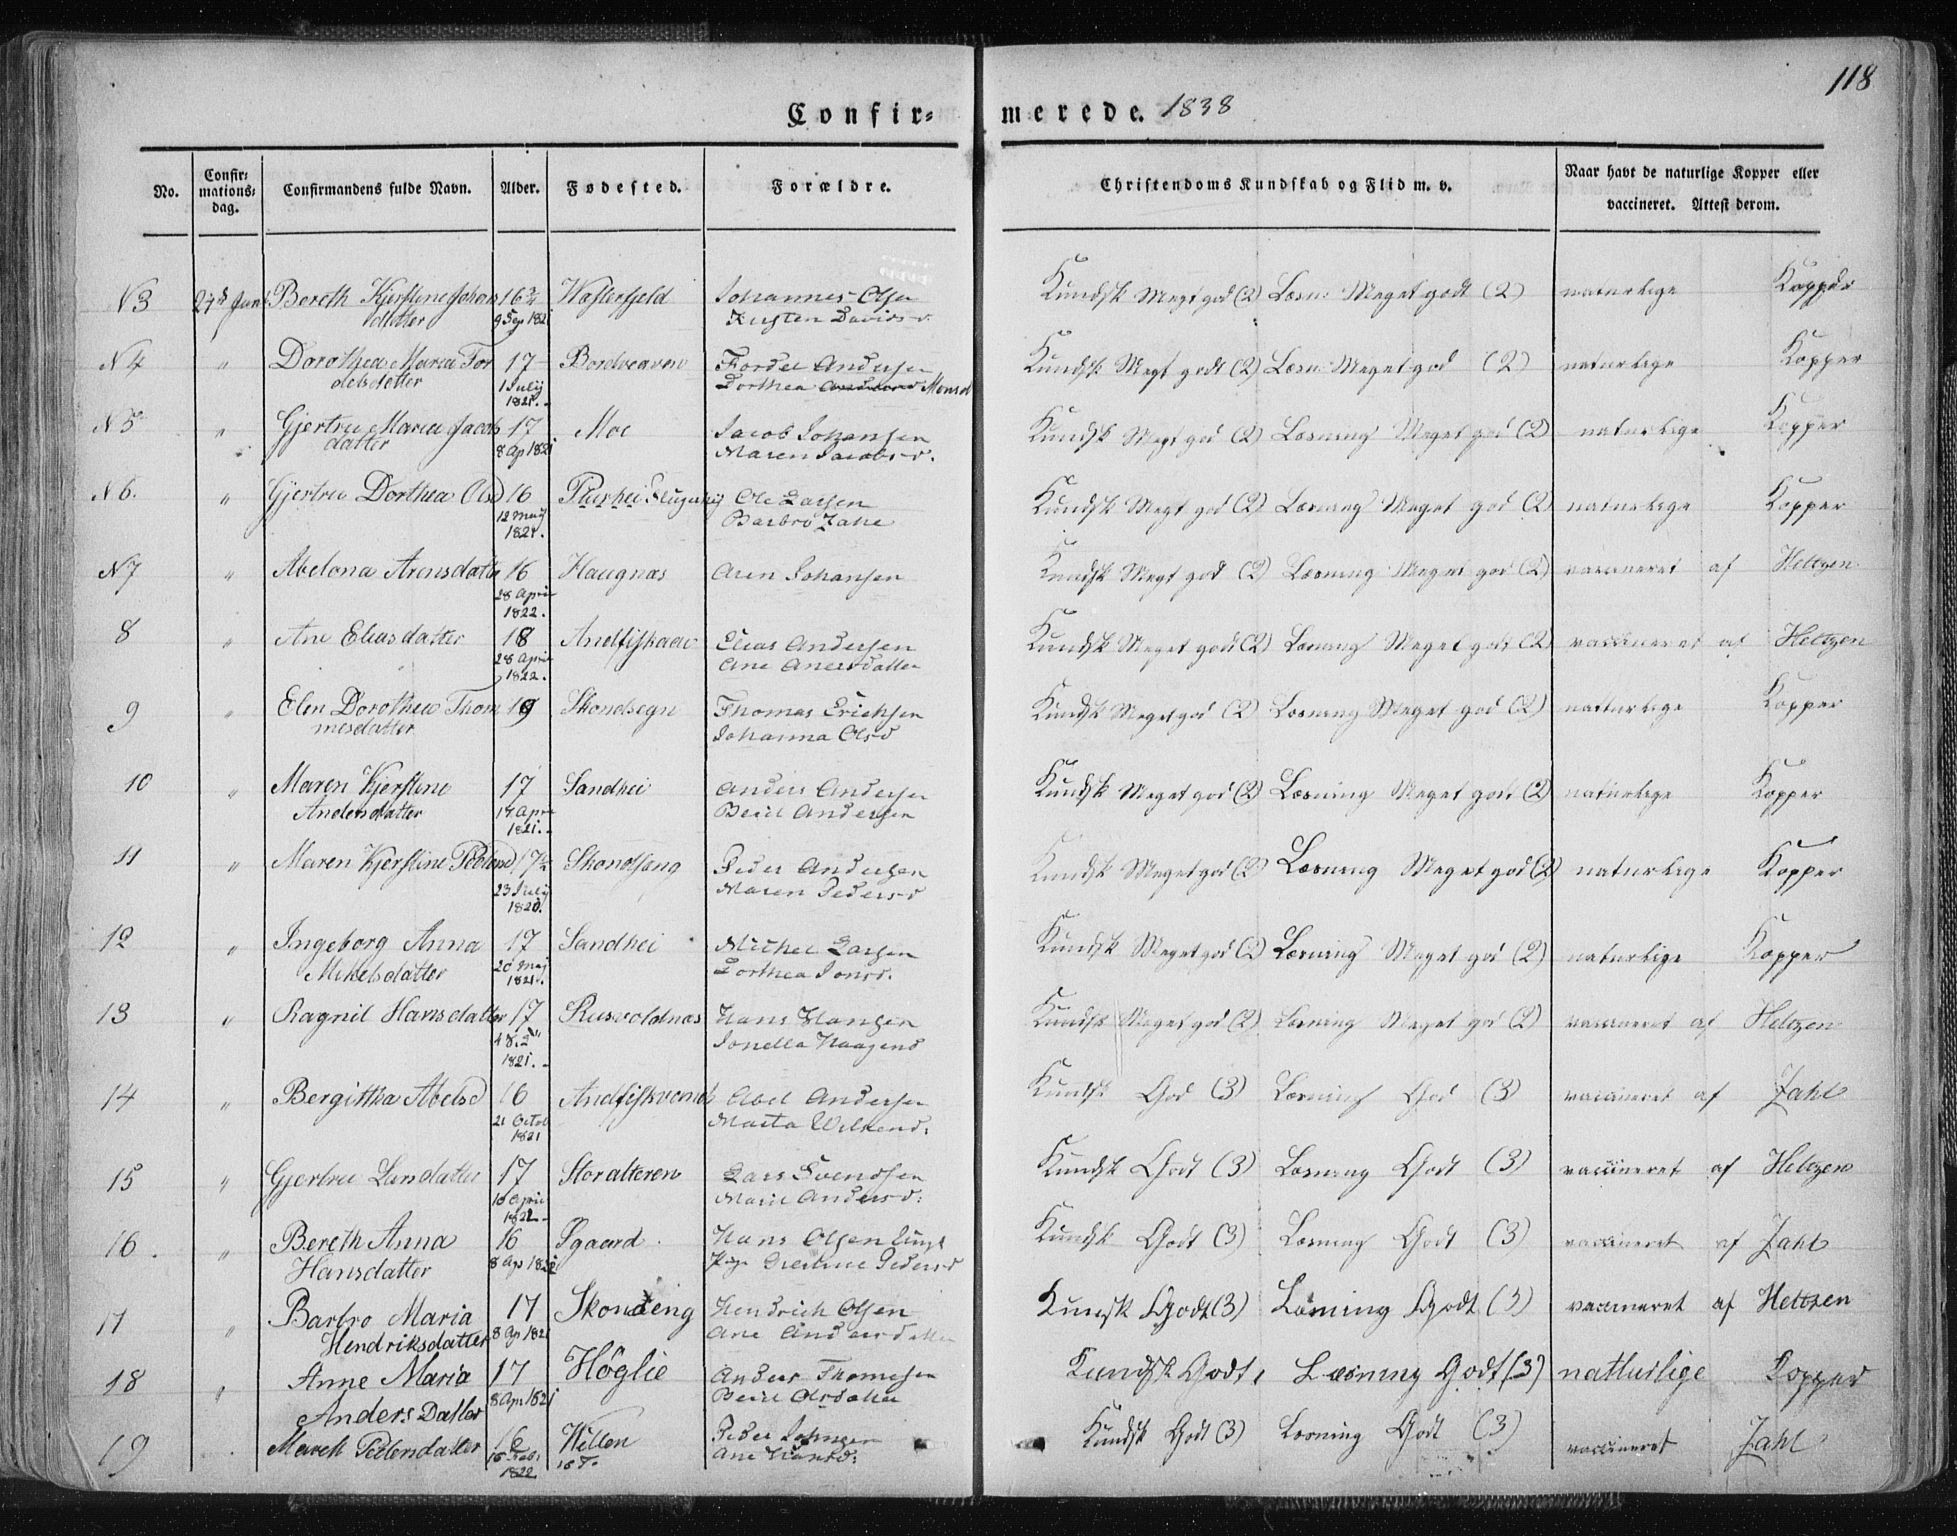 118
Confir= merede. 1838
No. Confir= mations= dag. Confirmandens fulde Navn. Alder. Fødested. Forældre. Christendoms Kundskab og Flid m. v. Naar havt de naturlige Kopper eller vaccineret. Attest derom.
N 3 Bereth Kjerstine Johans Johannes Olsen Kundsk Megt god (2) Læsn. Meget godt (2) naturlige Kopper
datter 9 Sep 1821 Kirsten Davids-d.
N 4 " Dorothea Maria Tor 17 Tordel Andersen Kundsk Megt godt (2) Læsn. Meget god (2) naturlige Kopper
delsdatter 1 Julij Dorthea Monsd
1821.
N 5 " Gjertru Maria Jacobs 17 Moe Jacob Johansen Kundsk Megt god (2) Læsning Meget god (2) naturlige Kopper
datter 8 Ap 1821 Maren Jacobs-d.
N 6. " Gjertru Dorthea Olsd 16 Ole Larsen Kundsk Megt god (2) Læsning Meget god (2) naturlige Kopper
12 Maij Barbro
1821.
N 7 " Abelona Arensdatter 16 Haugnæs Aren Johansen Kundsk Megt god (2) Læsning Meget god (2) vaccineret af Heltzen
28 April
1822.
8 " Ane Eliasdatter 18 Elias Andersen Kundsk Meget godt (2) Læsning Meget godt (2) vaccineret af Heltzen
28 April Ane Anersdatter
1822.
9 " Elen Dorothea Thom 19 Thomas Erichsen Kundsk Meget god (2) Læsning Meget god (2) naturlige Kopper
mesdatter Johanna Olsd
10 " Maren Kjerstine 17 Sandhei Anders Andersen Kundsk Meget god (2) Læsning Meget godt (2) naturlige Kopper
Andersdatter Berit Andersen
1821.
11 " Maren Kjerstine Pedersd 17½ Peder Andersen Kundsk Meget god (2) Læsning Meget god (2) naturlige Kopper
23 Julij Maren Peders-d
1820.
12 " Ingeborg Anna 17 Sandhei Michel Larsen Kundsk Meget god (2) Læsning Meget god (2) naturlige Kopper
Mikelsdatter 20 Maj Dorthea Jonsd.
1821.
13 " Ragnil Hansdatter 17 Rusvoldnæs Hans Hansen Kundsk Meget god (2) Læsning Meget god (2) vaccineret af Heltzen
Jonella Haagensd
1821.
14 " Bergittha Abelsd 16 Abel Andersen Kundsk God (3) Læsning God (3) vaccineret af Zahl
21 Octob Marta
1821
15 " Gjertru Larsdatter 17 Storalteren Lars Svendsen Kundsk Godt (3) Læsning Godt (3) vaccineret af Heltzen
10 April Marit Anders-d.
1822
16. " Bereth Anna 16 Hans Olsen Kundsk Godt (3) Læsning Godt (3) vaccineret af Zahl
Hansdatter 8 Ap 1822 Pedersd
17 " Barbro Maria 17 Skonseng Hendrich Olsen Kundsk Godt (3) Læsning Godt (3) vaccineret af Heltzen
Hendriksdatter 8 Ap 1821 Ane Andersdatter
18 " Anne Maria 17 Höglie Anders Thomesen Kundsk Godt, Læsning Godt (3) natturlige Kopper
Anders Datter 8 Apr 1821 Berit Olsdatter
19 Mareth Pedersdatter 16 Peder Johnsen Kundsk Godt (3) Læsning Godt (3) vaccineret Zahl
16 Feb. Ane Hansd.
1822